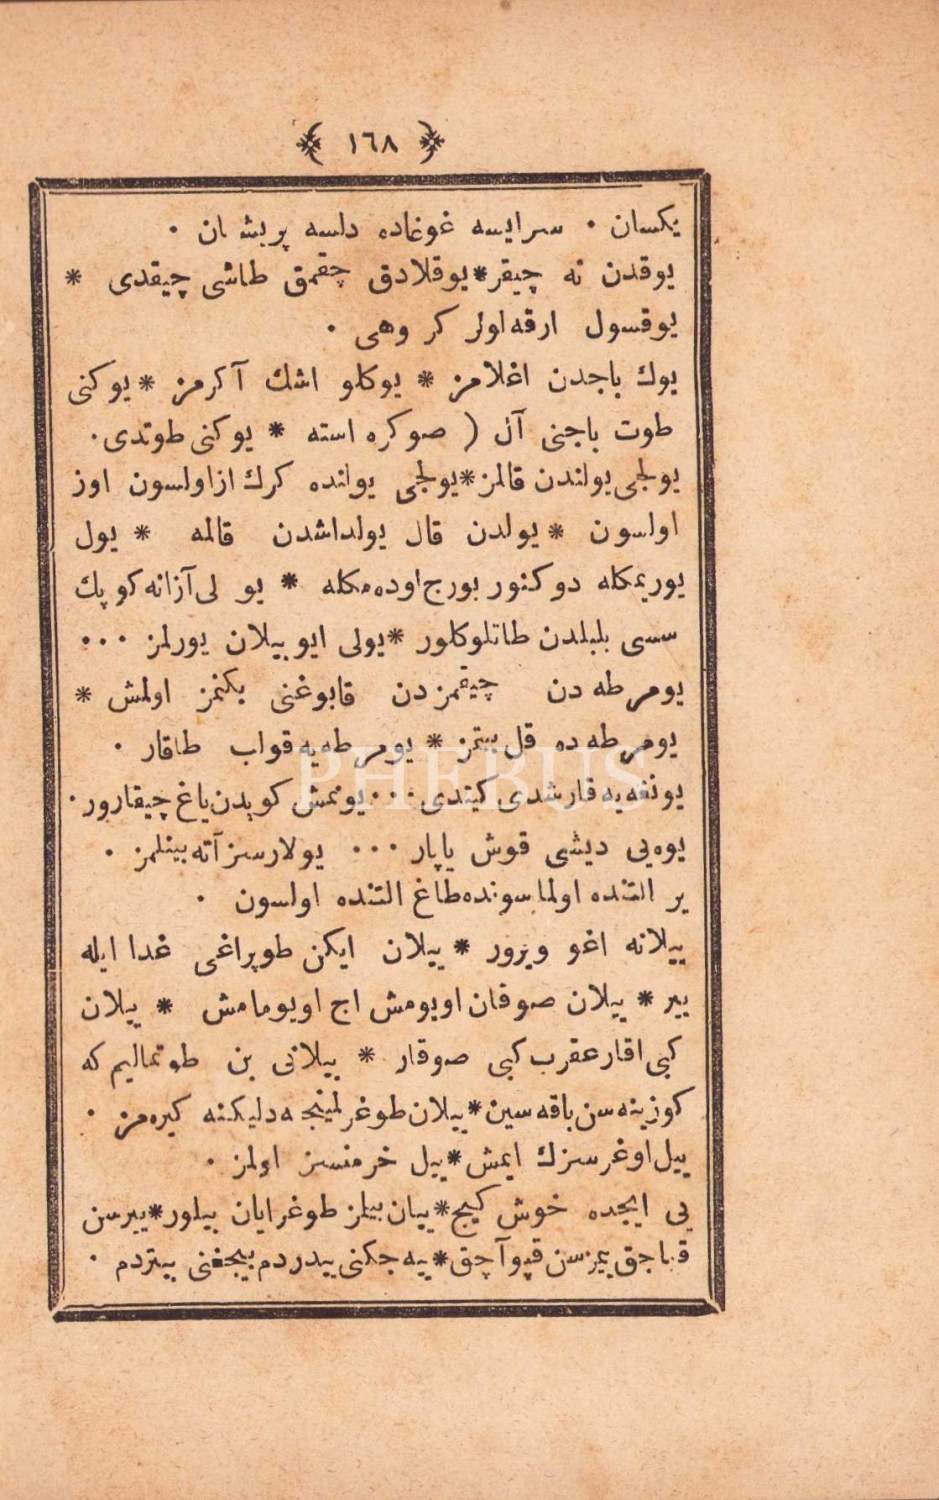 ١٦٨
یکسان ٠ سرایسه غوغاده دلسه پریشان ٠
یوقدن نه چیقر * یوقلادق چقمق طاشی چیقدی *
یوقسول ارقه اولر کر وهی ٠
یوك باجدن اغلامز * یوکلو اشك آکرمز * یوکنی
طوت باجنی آل ( صوکره استه * یوکنی طوتدی ٠
یولجی یولندن قالمز * یولجی یولنده کرك از اولسون اوز
اولسون * یولدن قال یولداشدن قالمه * یول
یوریمکله دوکنور بورج اوده مکله * یو لی آزانه کوپك
سسی بلبلدن طاتلوکلور * یولی ایو بیلان یورلمز ٠٠٠
یومرطه دن چیقمزدن قابوغنی بکنمز اولمش *
یومرطه ده قل بیتمز * یومرطه یه قواب طاقار ٠
یونغه یه قارشدی کیتدی ٠٠٠ یونمش کوپدن یاغ چیقارور ٠
یوه یی دیشی قوش یاپار ٠٠٠ یولارسز آته بینلمز ٠
یر التنده اولماسونده طاغ التنده اولسون ٠
ییلانه اغو ویرور * ییلان ایکن طوپراغی غدا ایله
ییر * ییلان صوقان اویومش اج اویومامش * ییلان
کبی اقار عقرب کبی صوقار * ییلانی بن طوتمالیم که
کوزینه سن باقه سین * ییلان طوغرلمینجه دلیکنه کیره مز ٠
ییل اوغرسزك ایمش * ییل خرمنسز اولمز ٠
یی ایچده خوش کیج * ییان بیلز طوغرایان بیلور * ییرسن
قباجق یمزسن قپو آچق * ییه جکنی ییدردم بیجغنی بیتردم ٠
PHEBUS